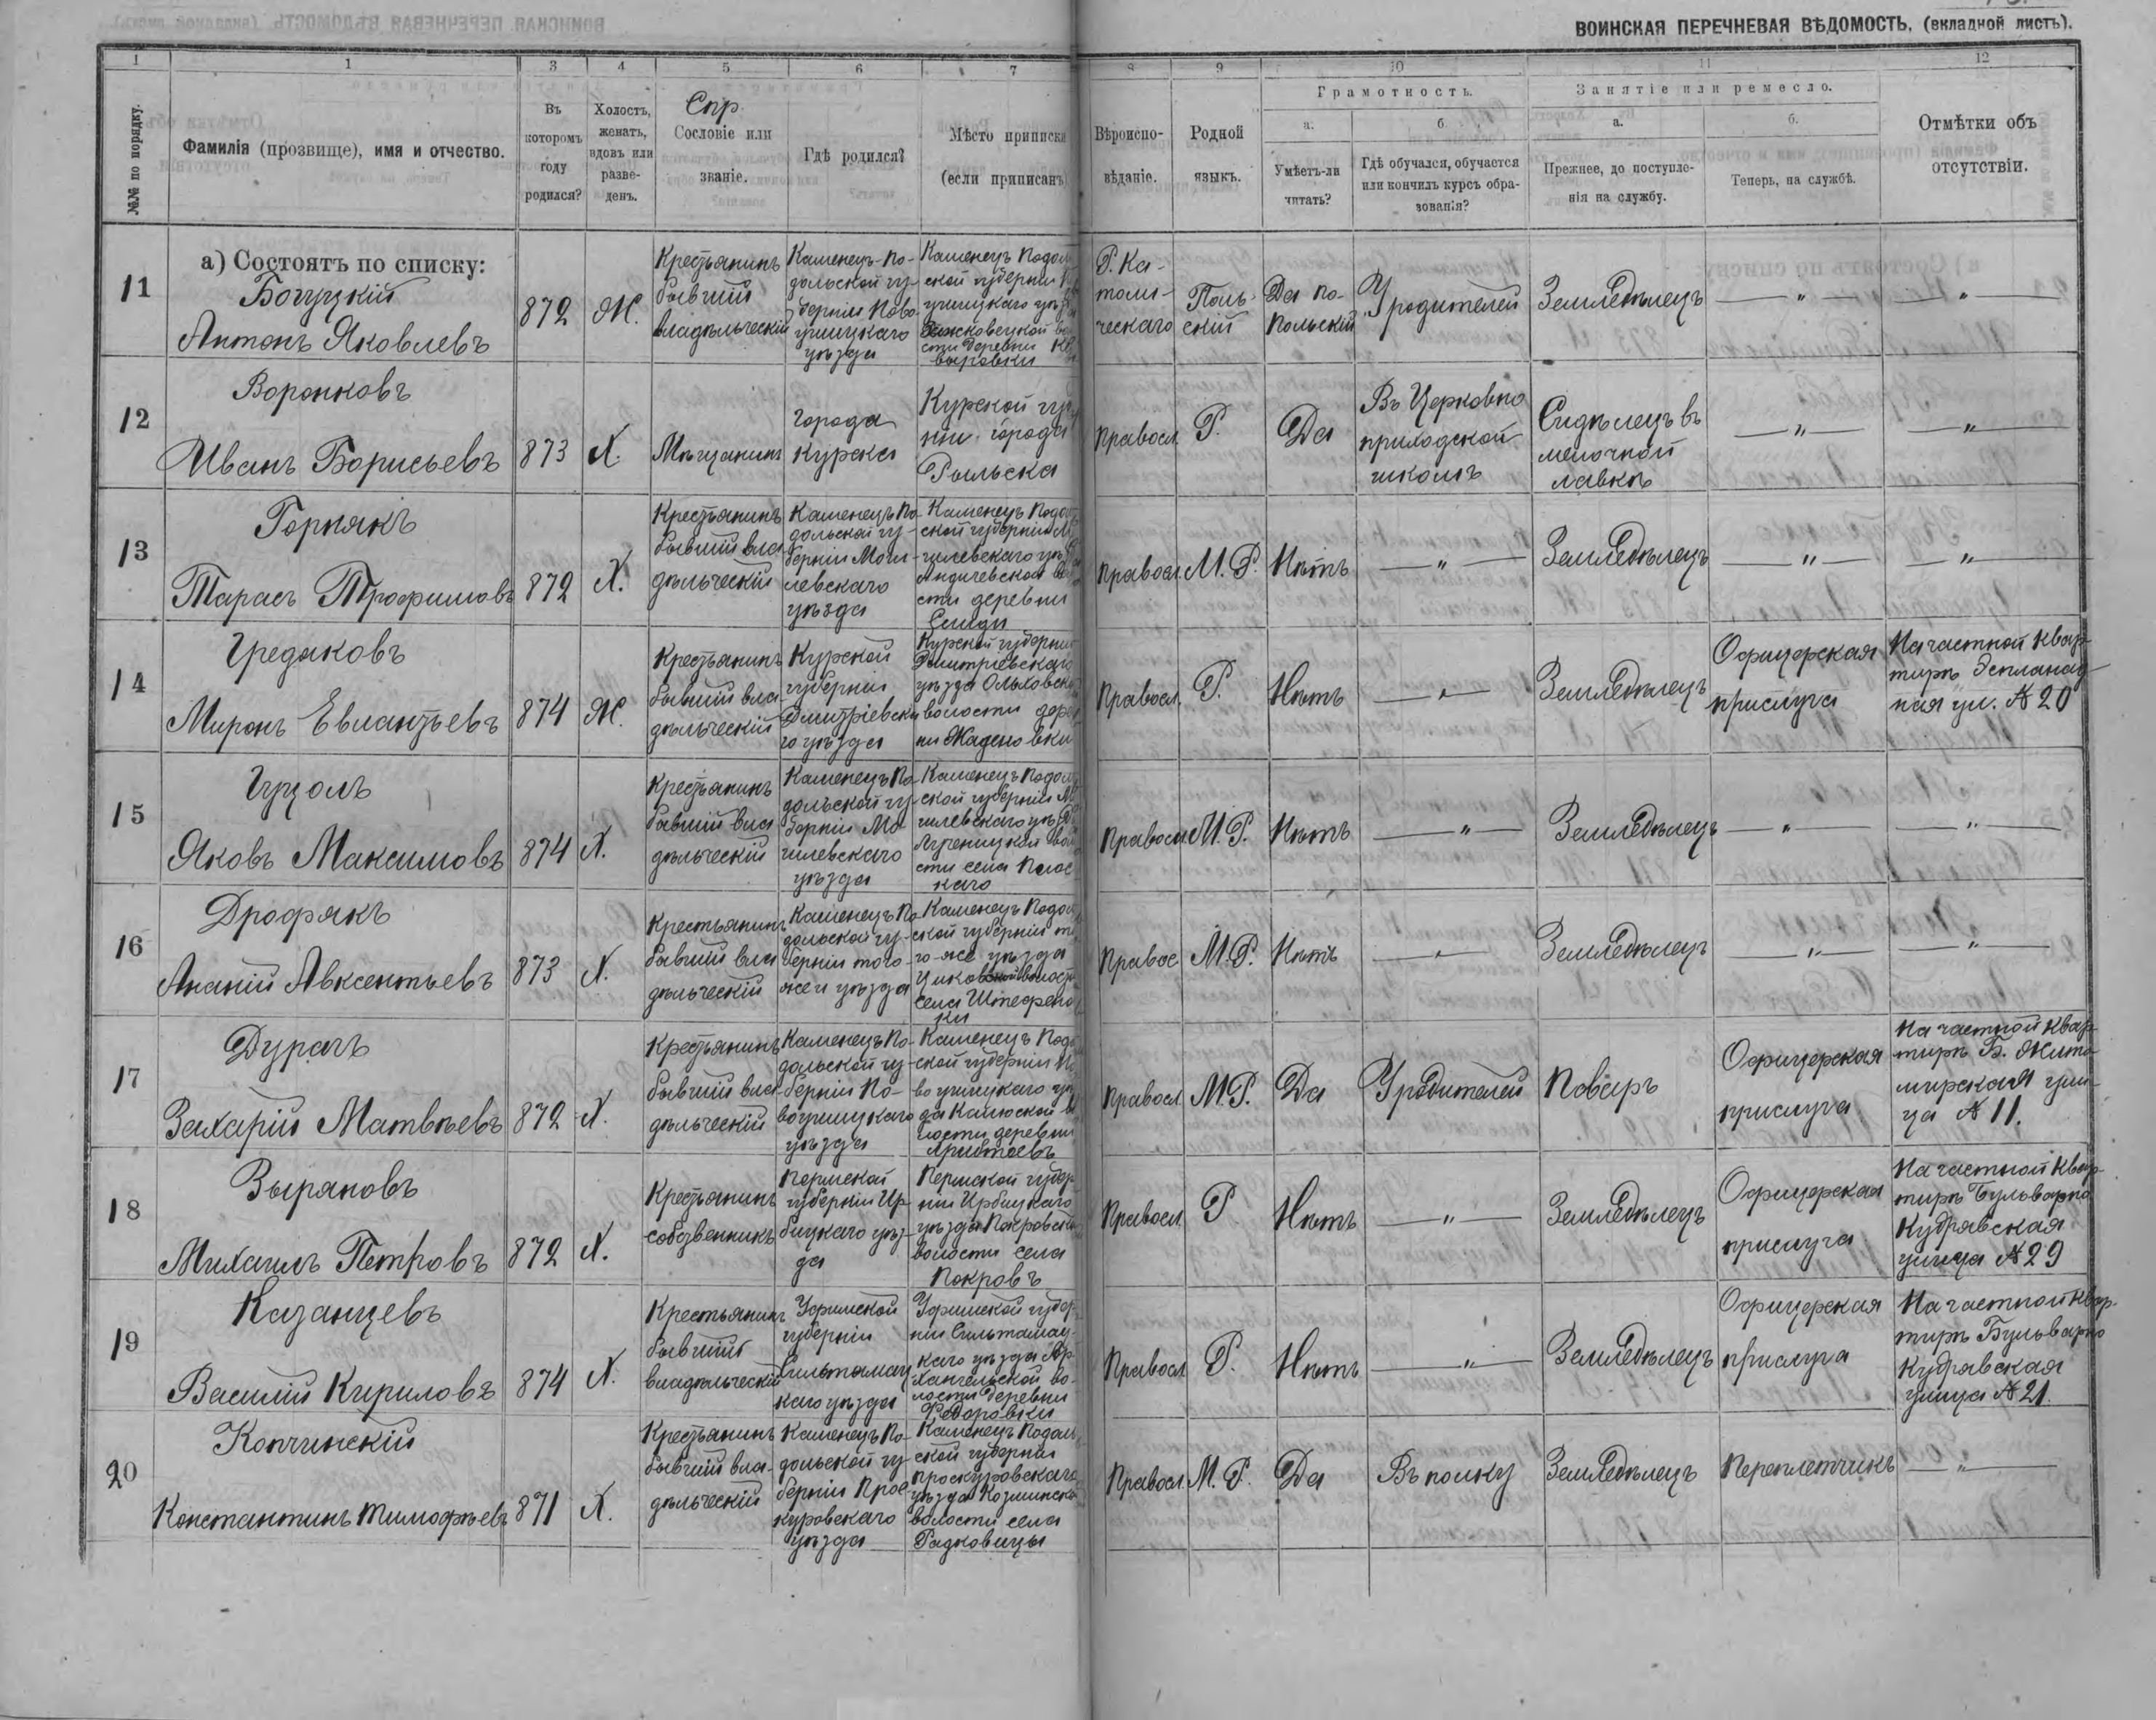 ВОИНСКАЯ ПЕРЕЧНЕВАЯ ВѢДОМОСТЬ, (вкладной листъ).
1 1 3 4 5 6 7 8 9 10 11 12
№№ по порядку.
Фамилія (прозвище), имя и отчество.
Въ
которомъ
году
родился?
Холостъ,
женатъ,
вдовъ или
разве-
денъ.
Спр.
Сословіе или
званіе.
Гдѣ родился?
Мѣсто приписки
(если приписанъ
Вѣроиспо-
вѣданіе.
Родной
языкъ.
Грамотность.
а.
Умѣетъ-ли
читать?
б.
Гдѣ обучался, обучается
или кончилъ курсъ обра-
зованія?
Занятіе или ремесло.
а.
Прежнее, до поступле-
нія на службу.
б.
Теперь, на службѣ.
Отмѣтки объ
отсутствіи.
а) Состоятъ по списку:
11
Богуцкій
Антонъ Яковлевъ
872
Ж.
Крестьянинъ
бывшій
владѣльческій
Каменецъ-По-
дольской гу-
берніи Ново-
ушицкаго
уѣзда
Каменецъ Подол
ской губерніи
ушицкаго уѣз
сти деревни
Р. Ка-
толи-
ческаго
Поль-
скій
Да по-
Польскій
У родителей
Земледѣлецъ
— „ —
— „ —
12
Воронковъ
Иванъ Борисьевъ
873
Х.
Мѣщанинъ
Города
Курска
Курской губ
ніи города
Рыльска
Правосл.
Р.
Да
Въ Церковно
приходской
школѣ
Сидѣлецъ въ
мелочной
лавкѣ
— „ —
— „ —
13
Горнякъ
Тарасъ Трофимовъ
872
Х.
Крестьянинъ
бывшій вла-
дѣльческій
Каменецъ По-
дольской гу-
берніи Моги-
левскаго
уѣзда
Каменецъ Подол
ской губерніи М
гилевскаго уѣз
сти деревни
Правосл.
М. Р.
Нѣтъ
— „ —
Земледѣлецъ
— „ —
— „ —
14
Гредаковъ
Миронъ Евлантьевъ
874
Ж.
Крестьянинъ
бывшій вла-
дѣльческій
Курской
губерніи
Дмитріевска
го уѣзда
Курской губерніи
Дмитріевскаго
уѣзда Ольховско
волости дерев
ни Жаденовки
Правосл.
Р.
Нѣтъ
— „ —
Земледѣлецъ
Офицерская
прислуга
На частной квар-
тирѣ Эспланад-
ная ул. № 20
15
Гуцолъ
Яковъ Максимовъ
874
Х.
Крестьянинъ
бывшій вла
дѣльческій
Каменецъ По-
дольской гу-
берніи Мо-
гилевскаго
уѣзда
Каменецъ Подол
ской губерніи Мо
гилевскаго уѣзда
Лучинецкой вол
сти села
Правосл.
М. Р.
Нѣтъ
— „ —
Земледѣлецъ
— „ —
— „ —
16
Дрофякъ
Ананій Авксентьевъ
873
Х.
Крестьянинъ
бывшій вла
дѣльческій
Каменецъ По-
дольской гу-
берніи того
же и уѣзда
Каменецъ Подол
ской губерніи то
го-же уѣзда
волости
села
Правос
М. Р.
Нѣтъ
— „ —
Земледѣлецъ
— „ —
— „ —
17
Дурачъ
Захарій Матвѣевъ
872
Х.
Крестьянинъ
бывшій вла-
дѣльческій
Каменецъ По-
дольской гу-
берніи Но-
воушицкаго
уѣзда
Каменецъ Подо
ской губерніи Но
воушицкаго уѣз
да Калюской в
лости деревни
Правосл.
М. Р.
Да
У родителей
Поваръ
Офицерская
прислуга
На частной квар-
тирѣ Б. Жито-
мирская ули-
ца № 11.
18
Зыряновъ
Михаилъ Петровъ
872
Х.
Крестьянинъ
собственникъ
Пермской
губерніи Ир-
бицкаго уѣз-
да
Пермской губер
ніи Ирбицкаго
уѣзда Покровско
волости села
Покровъ
Правосл.
Р
Нѣтъ
— „ —
Земледѣлецъ
Офицерская
прислуга
На частной квар-
тирѣ Бульварно
Кудрявская
улица № 29
19
Казанцевъ
Василій Кириловъ
874
Х.
Крестьянинъ
бывшій
владѣльческій
Уфимской
губерніи
Стильтамац
каго уѣзда
Уфимской губер
ніи Сильтамац-
каго уѣзда Ар-
хангельской во-
лости деревни
Федоровки
Правосл
Р.
Нѣтъ
— „ —
Земледѣлецъ
Офицерская
прислуга
На частной квар-
тирѣ Бульварно
Кудрявская
улица № 21.
20
Копчинскій
Константинъ Тимофѣевъ
871
Х.
Крестьянинъ
бывшій вла-
дѣльческій
Каменецъ По-
дольской гу-
берніи Прос-
куровскаго
уѣзда
Каменецъ Подоль
ской губерніи
Проскуровскаго
уѣзда
волости села
Радковицы
Правосл.
М. Р.
Да
Въ полку
Земледѣлецъ
Переплетчикъ
— „ —